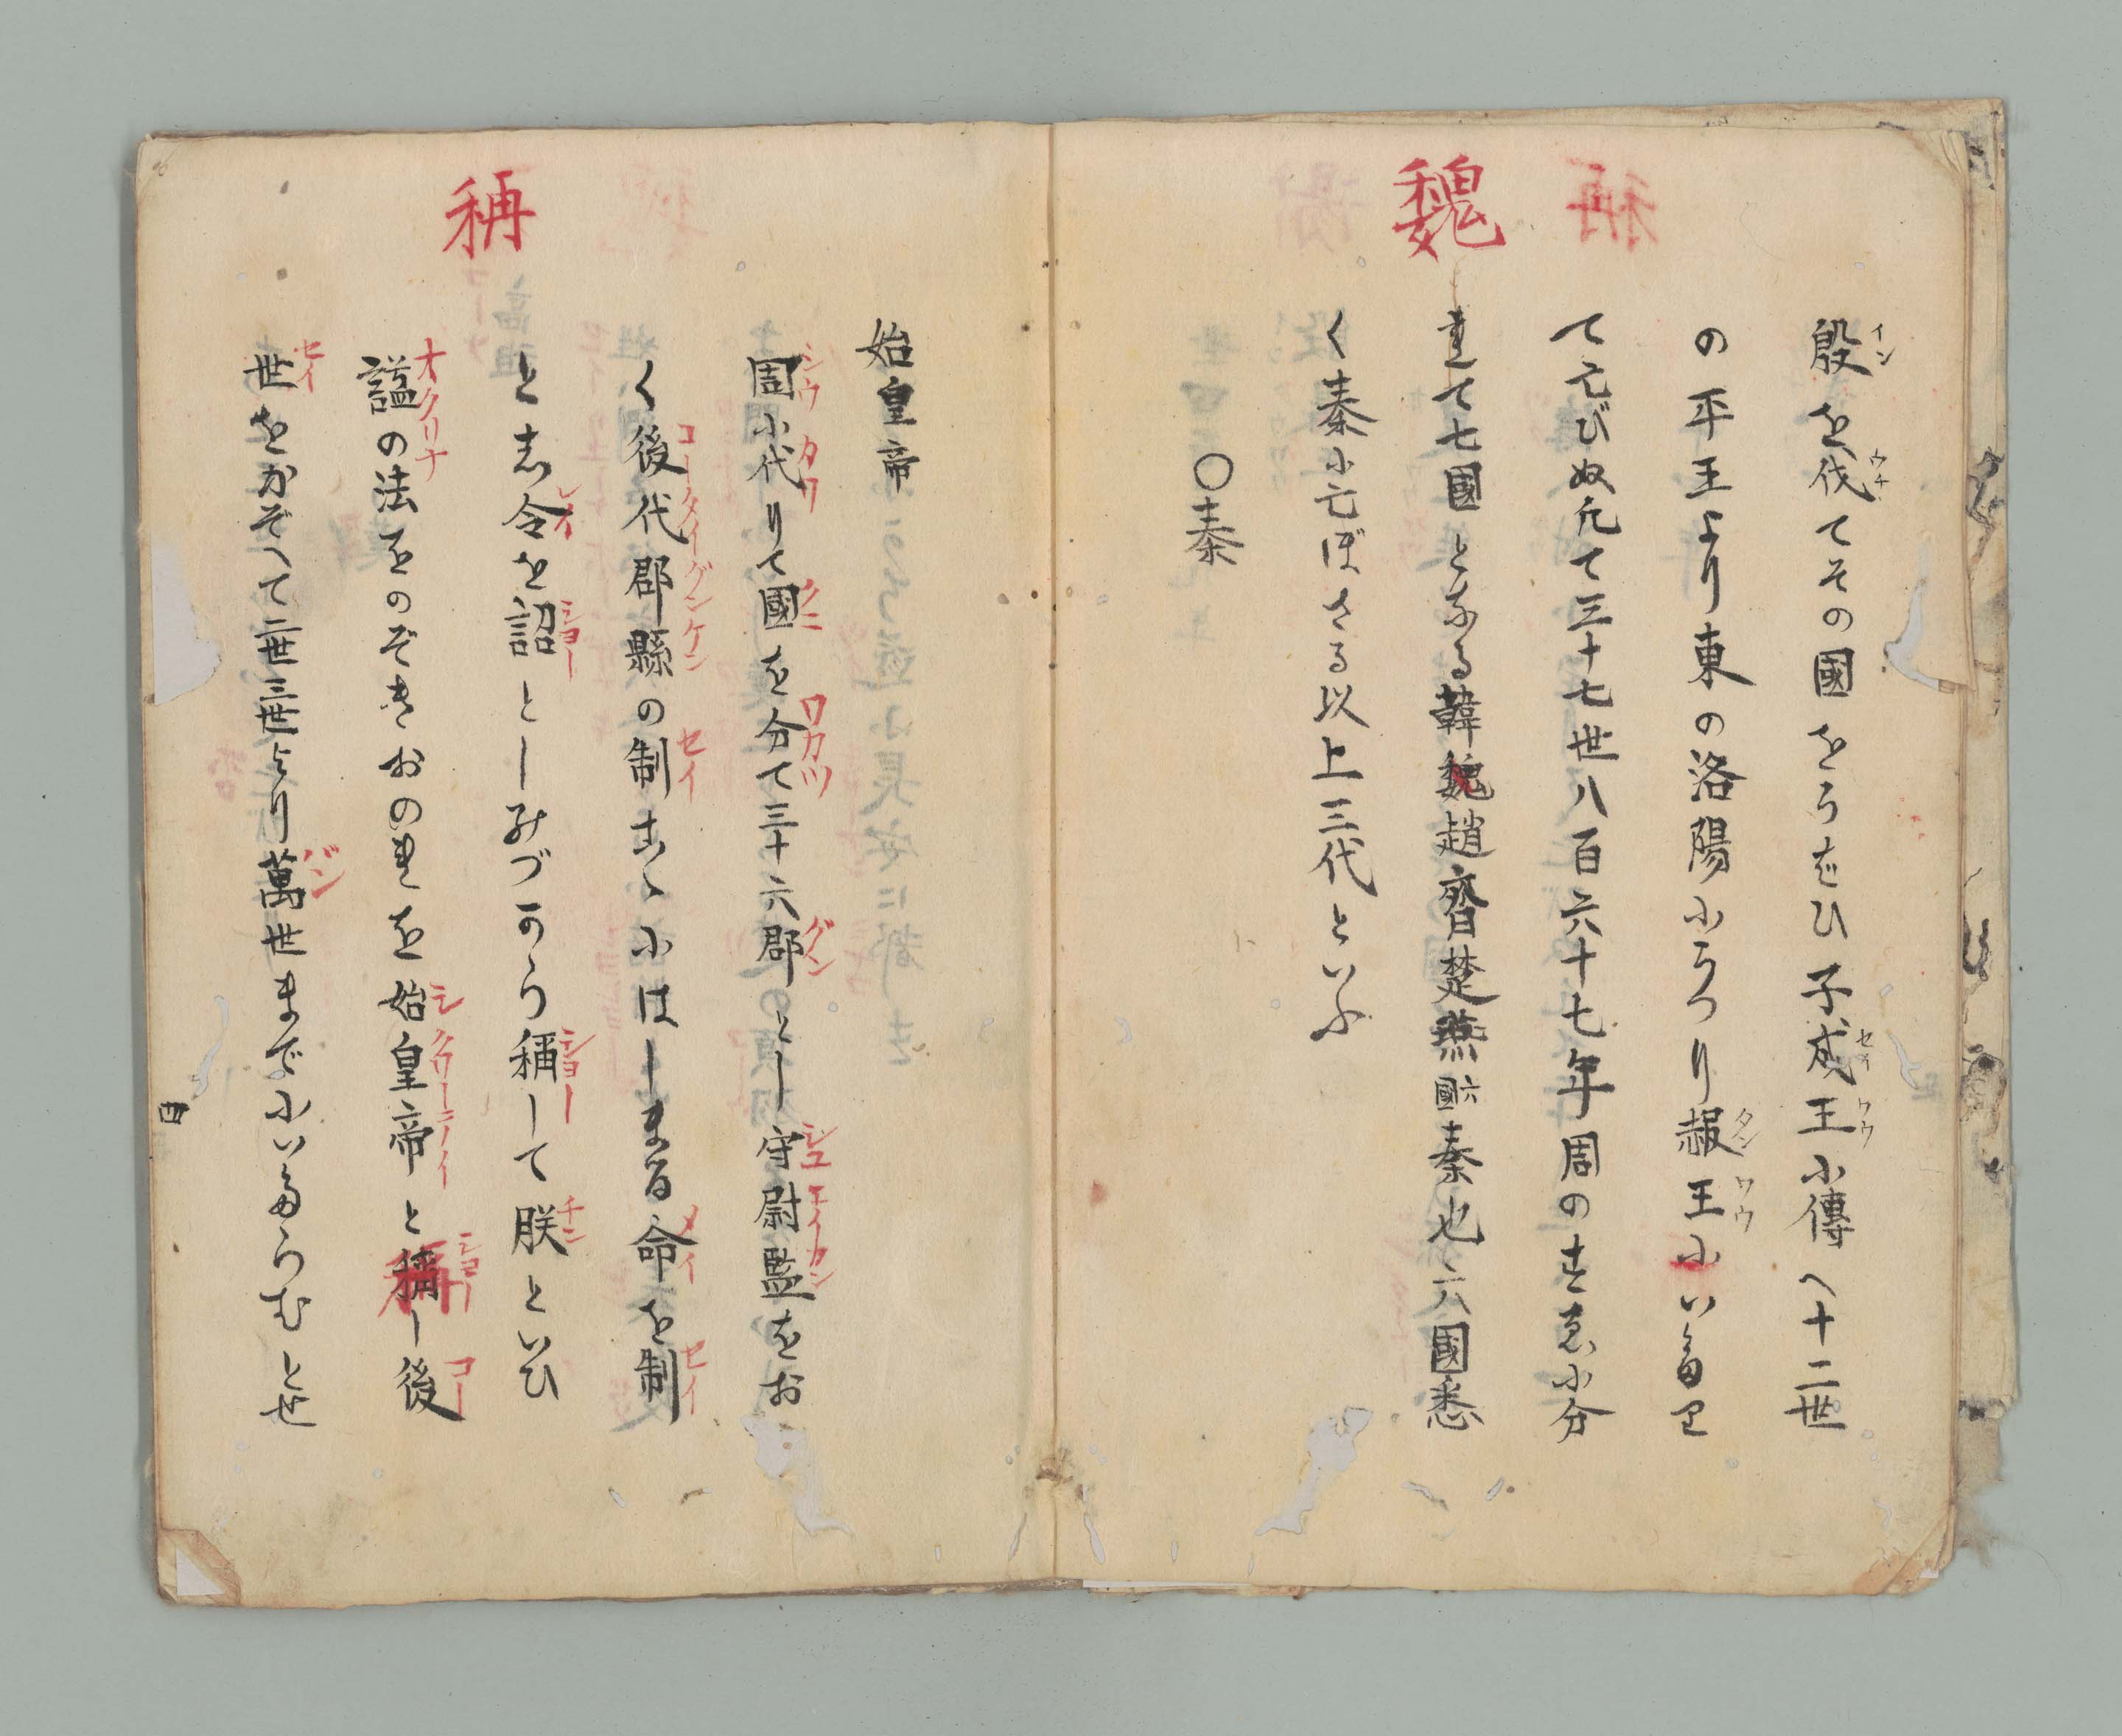 魏
殷を伐てその國をうばひ子成王に傳へ十二世
の平王より東の洛陽にうつり赧王にいたり
て亡びぬ凡て三十七世八百六十七年周のすゑに分
れて七國となる韓魏趙齊楚燕六國秦也六國悉
く秦に亡ぼさる以上三代といふ
〇秦
稱
始皇帝
周に代りて國を分て三十六郡とし守尉監をお
く後代郡縣の制こゝにはじまる命を制
とし令を詔としみづから稱して朕といひ
諡の法をのぞきおのれを始皇帝と稱し後
世をかぞへて二世三世より萬世までにいたらむとせ
四